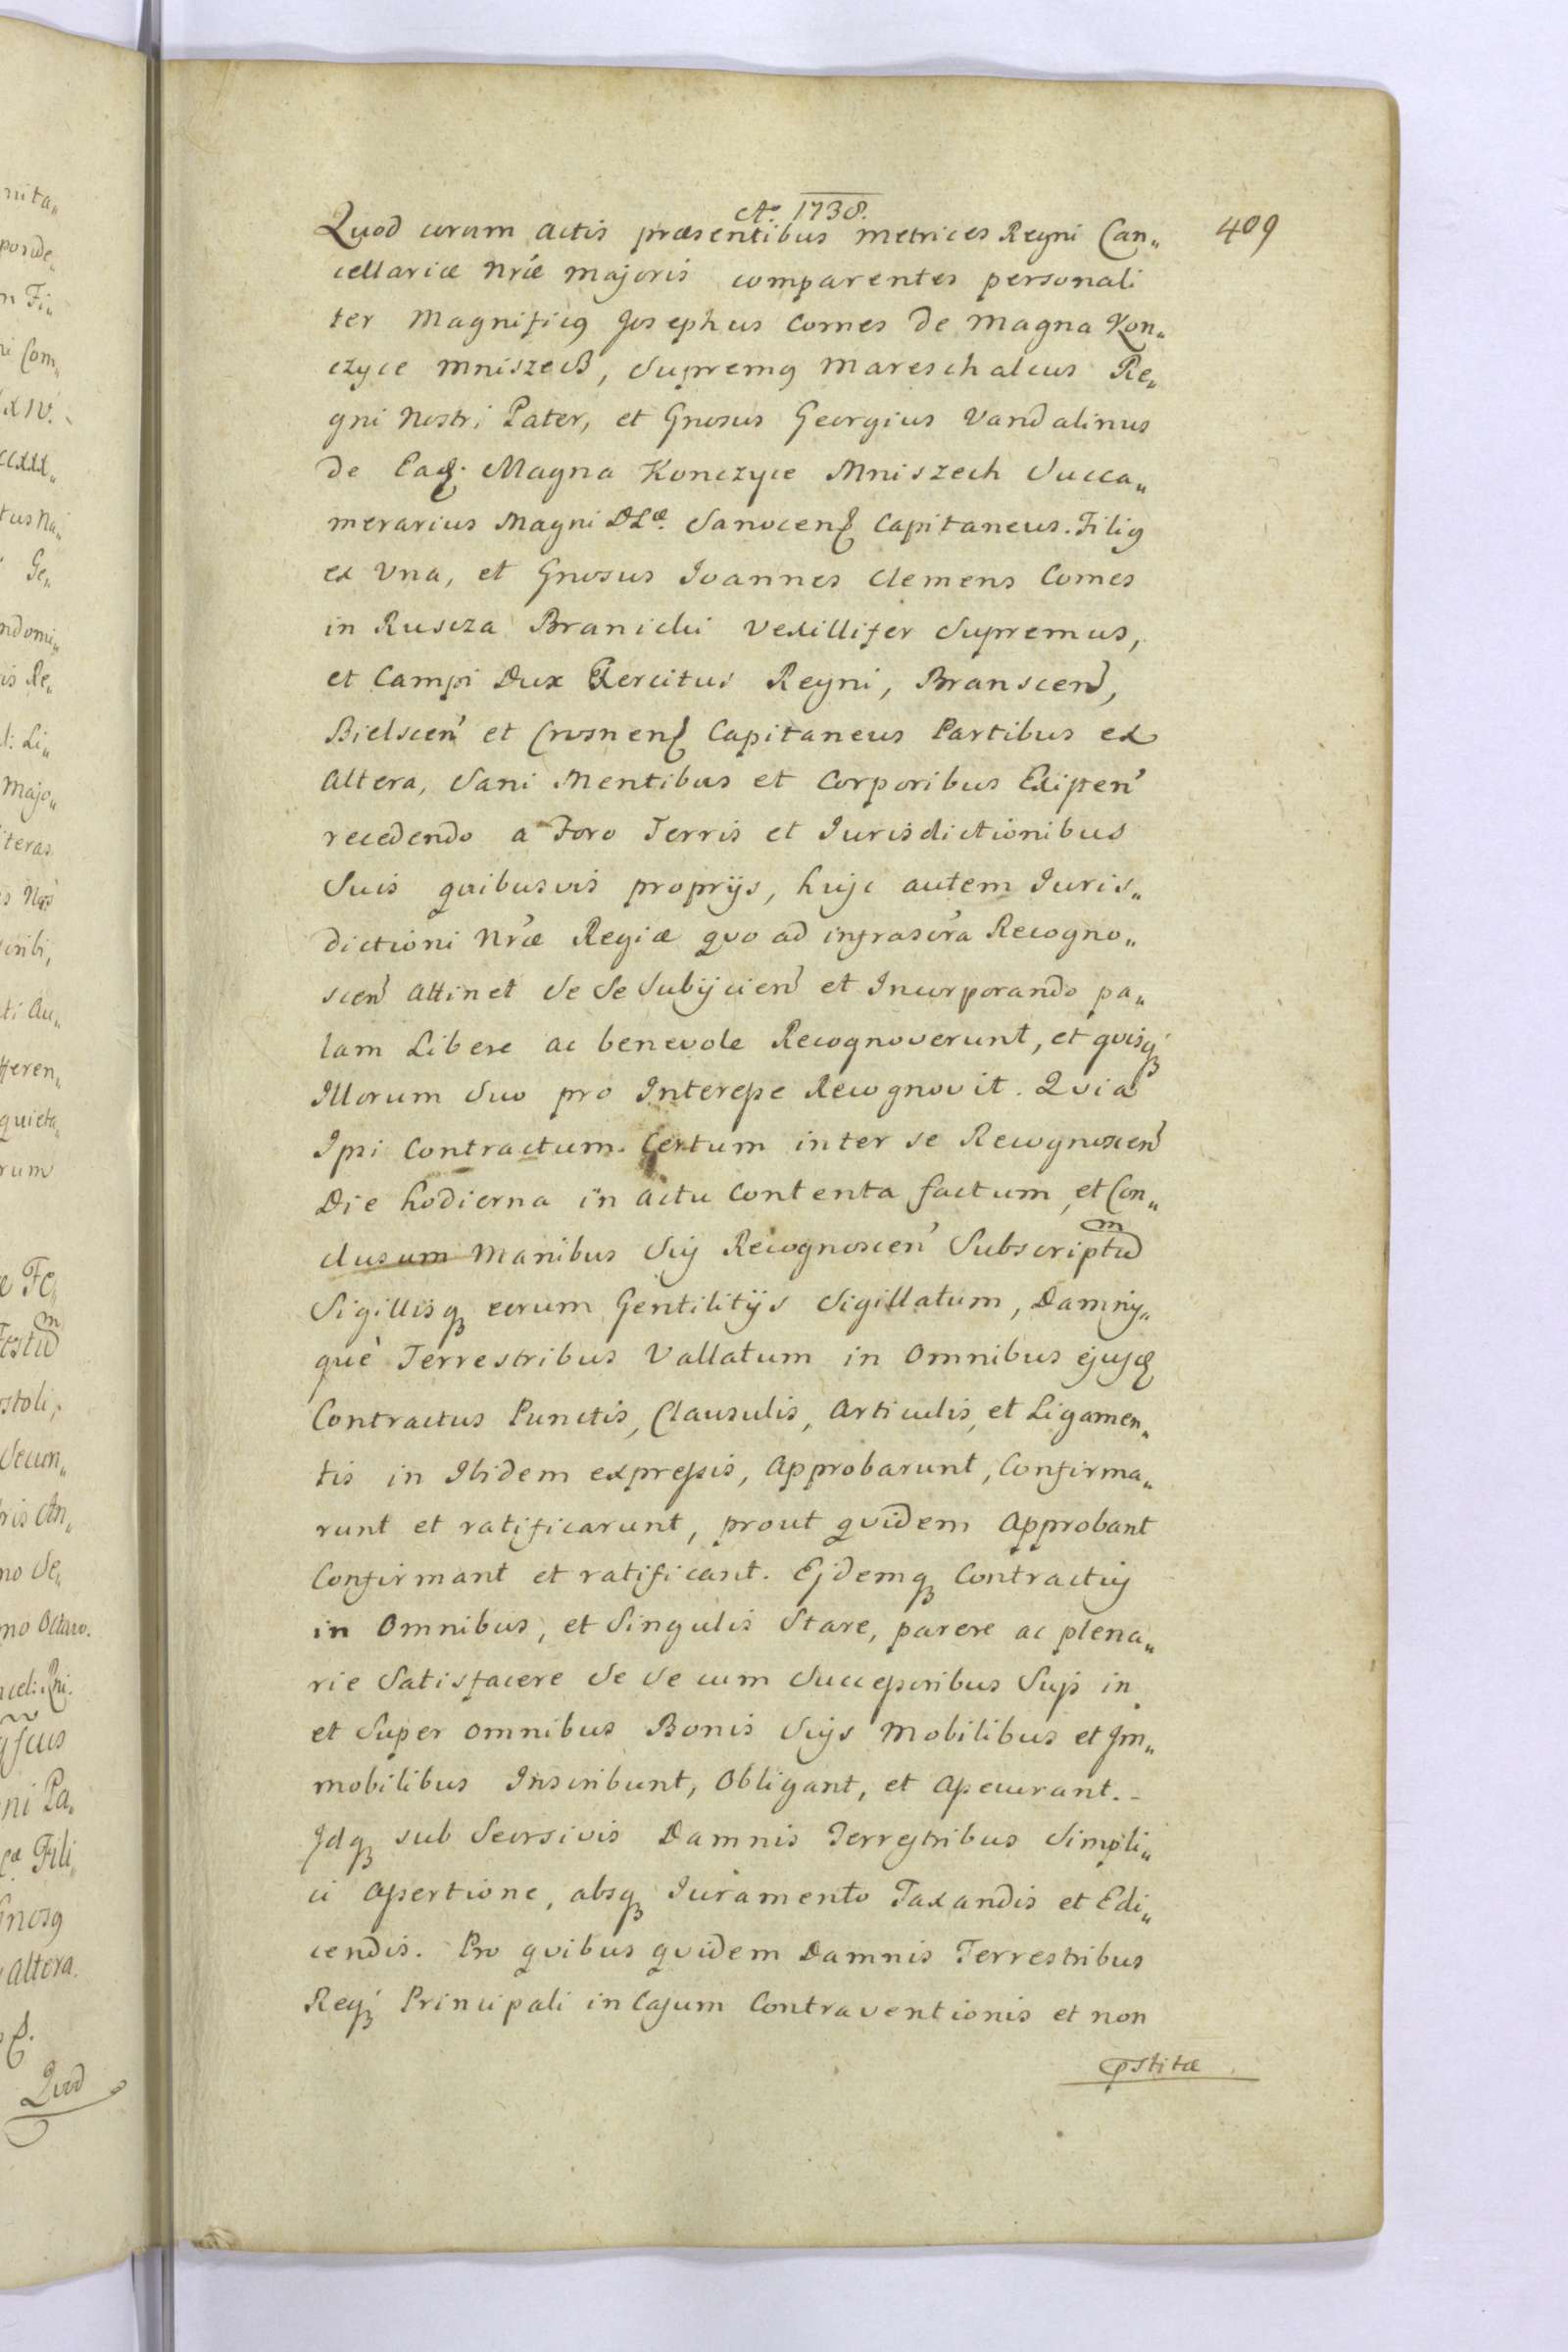 Ao. 1738.
409
Quod coram actis præsentibus metrices Regni Can„
cellariæ nræ majoris comparentes personali
ter Magnificg Josephus Comes de Magna Kon„
czyce Mniszech, Supremg Mareschalcus Re„
gni Nostri Pater, et Gnosus Georgius Vandalinus
de Eaq. Magna Konczyce Mniszech Succa„
merarius Magni DLæ. Sanocens Capitaneus. Filig
ex Una, et Gnosus Joannes Clemens Comes
in Ruscza Branicki Vexillifer Supremus,
et Campi Dux Exercitus Regni, Branscen,
Bielscen et Crosnens Capitaneus Partibus ex
Altera, Sani Mentibus et Corporibus Existen
recedendo a Foro Terris et Jurisdictionibus
Suis quibusvis proprijs, huic autem Juris„
dictioni Nræ Regiæ quo ad infrascra Recogno„
scen attinet Se Se Subijcien et Incorporando pa„
lam Libere ac benevole Recognoverunt, et quisq
Illorum Suo pro Interesse Recognovit. Quia
Ipsi Contractum Certum inter se Recognoscen
Die hodierna in actu Contenta factum, et Con„
clusum Manibus Suis Recognoscen Subscriptum
Sigillisq eorum Gentilitijs Sigillatum, Damnis„
què Terrestribus Vallatum in Omnibus ejusq
Contractus Punctis, Clausulis, Articulis, et Ligamen„
tis in Ibidem expressis, Approbarunt, Confirma„
runt et ratificarunt, prout quidem Approbant
Confirmant et ratificant. Ejdemq Contractuj
in Omnibus, et Singulis Stare, parere ac plena„
rie Satisfacere Se Se cum Successoribus Suis in
et Super omnibus Bonis Suis Mobilibus et Im„
mobilibus Inscribunt, Obligant, et Assecurant.-
Idq sub Seorsivis Damnis Terrestribus Simpli„
ci Assertione, absq Juramento Taxandis et Edi„
cendis. Pro quibus quidem Damnis Terrestribus
Req Principali in Casum Contraventionis et non
pstitæ